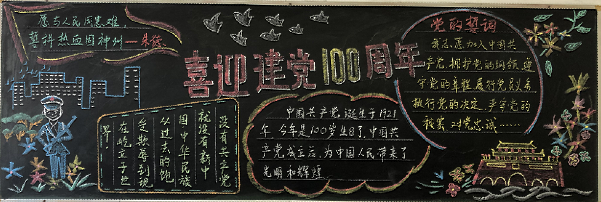 愿与人民同患难
誓拼热血固神州 —朱德
喜迎建党100周年
没有共产党
就没有新中
国中华民族
从过去的饱
受欺辱到现
在屹立于世
界
中国共产党,诞生于1921
年,今年是100岁生日了,中国共
产党成立后,为中国人民带来了
光明和辉煌
党的誓词
我志愿加入中国共
产党,拥护党的纲领,遵
守党的章程,履行党员义务
执行党的决定,严守党的
秘密,对党忠诚……